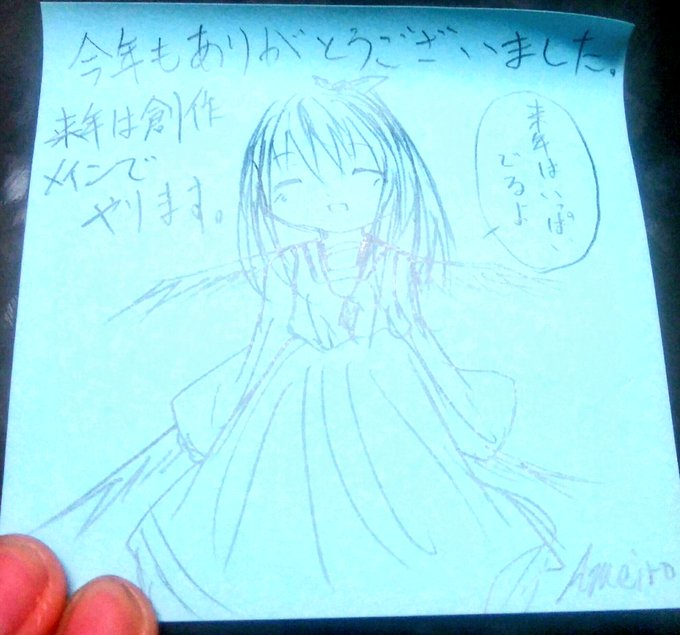 今年もありがとうございました。
来年は創作
メインで
やります。
来年はいっぱい
でるよ
Ameiro